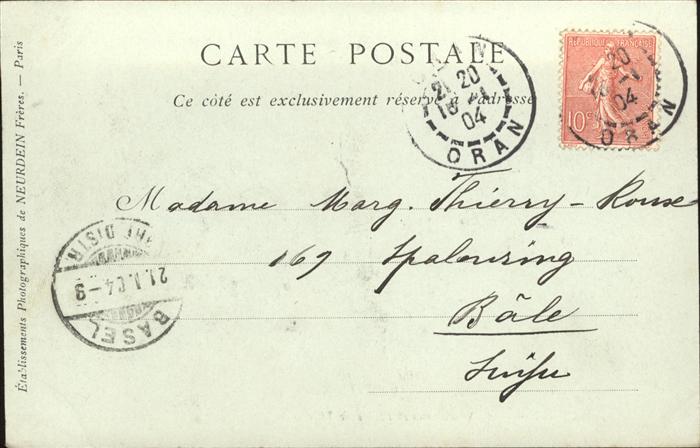 CARTE POSTALE
Ce côté est exclusivement réservé à l'adresse
RÉPUBLIQUE FRANÇAISE
10 c
20
04
ORAN
20
04
ORAN
Madame Marg. Thierry-Rouse
169 Spalenring
Bâle
Suisse
BRF DISTR
21.I.04-9
BASEL
Établissements Photographiques de NEURDEIN Frères. — Paris